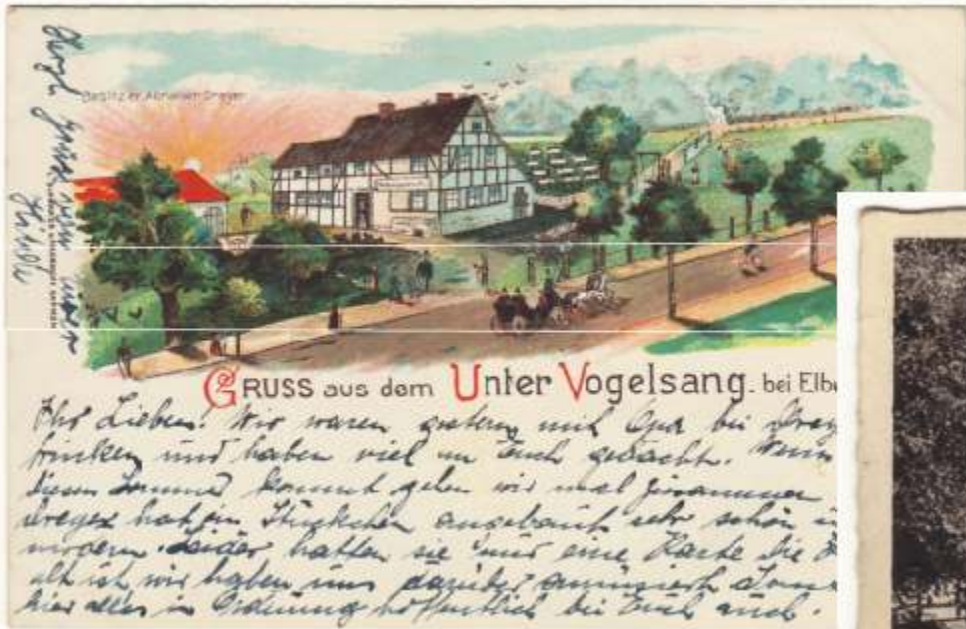 Besitzer, Abraham Dreyer
GRUSS aus dem Unter Vogelsang. bei Elbe
Ihr Lieben! Wir waren gestern mit Opa bei Drey
trinken und haben viel an Euch gedacht. Wenn
diesen Sommer kommt gehen wir mal zusammen
Dreyer hat ein Stückchen angebaut sehr schön
modern. Leider hatten sie nur eine Karte die
alt ist wir haben uns darüber amüsiert
hier alles in Ordnung hoffentlich bei Euch auch.
Herzl Grüße von